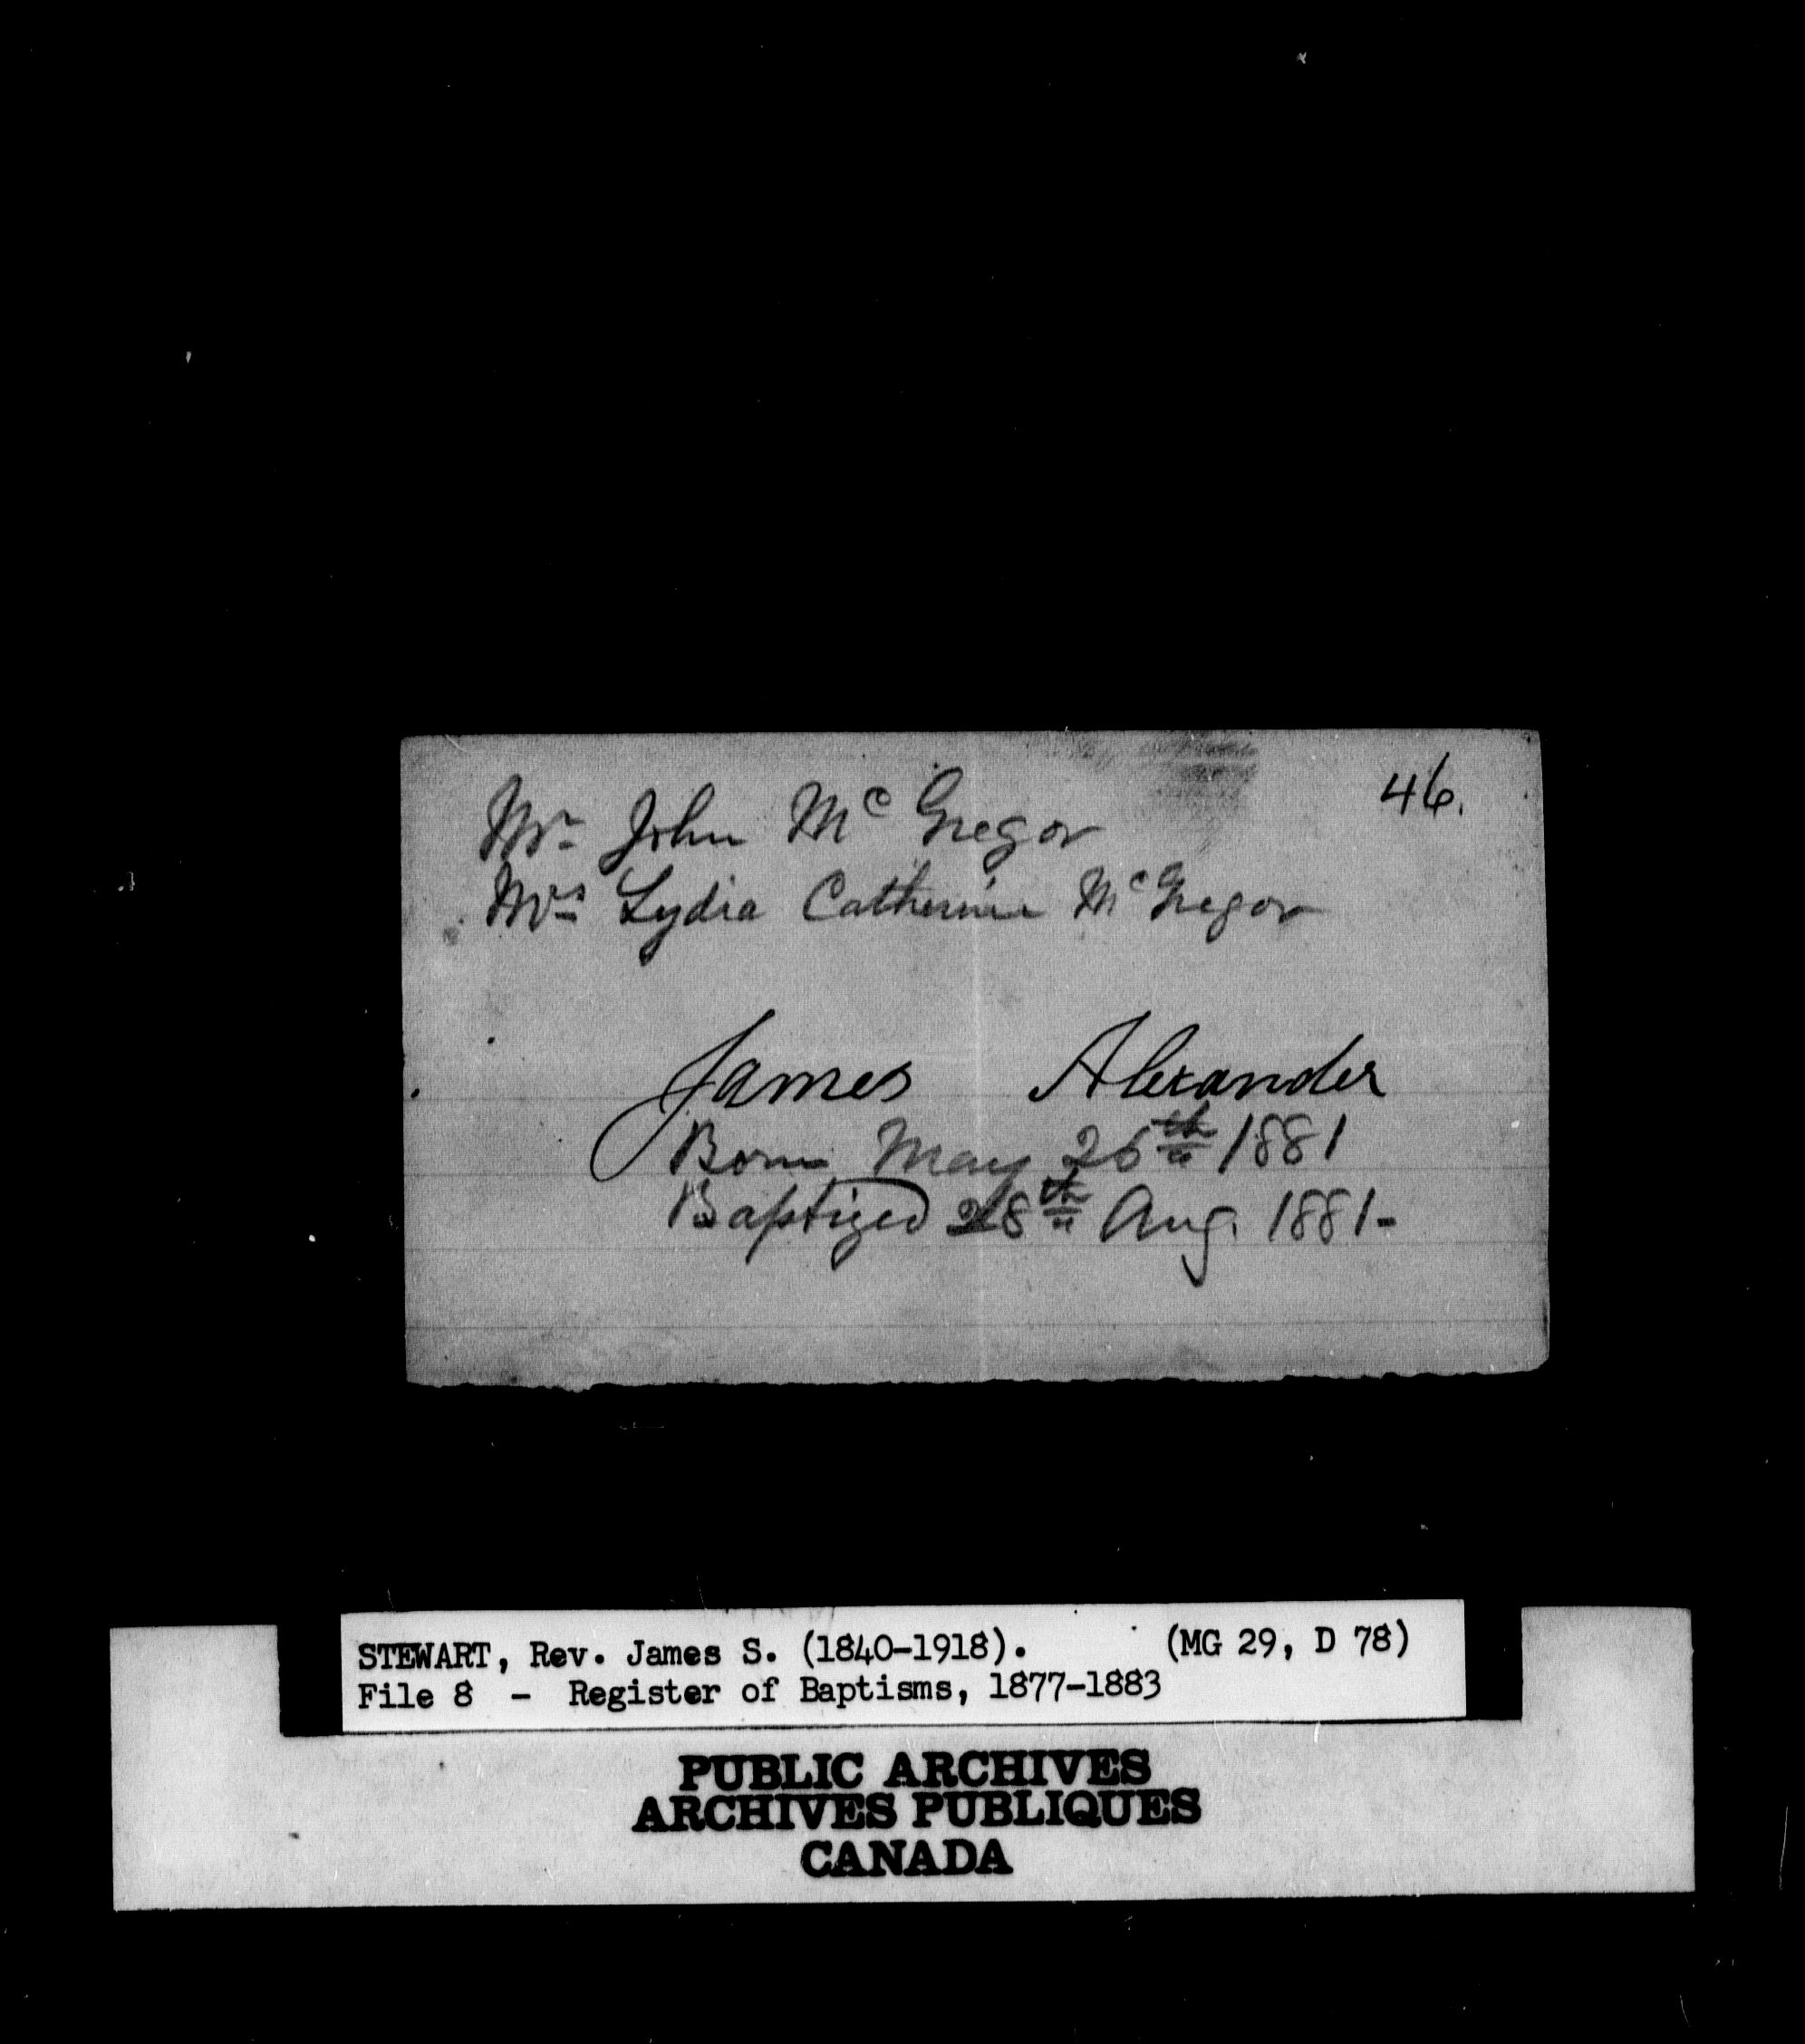 46.
Mr. John McGregor
Mrs Lydia Catherine McGregor
James Alexander
Born May 26th 1881
Baptized 28th Aug. 1881-
STEWART, Rev. James S. (1840-1918). (MG 29, D 78)
File 8 - Register of Baptisms, 1877-1883
PUBLIC ARCHIVES
ARCHIVES PUBLIQUES
CANADA